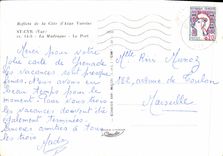 Reflets de la Côte d'Azur Varoise
ST-CYR (Var)
La Madrague - Le Port
Merci pour votre
jolie carte de Grenade
les vacances sont presque
finies. Nous avons eu
beau temps pour le
moment. Pour vous trois
les vacances doivent être
également terminées.
Bonnes amitiés à tous
les trois.
Mado
Mlle Rose Munoz
182, avenue de Toulon
Marseille